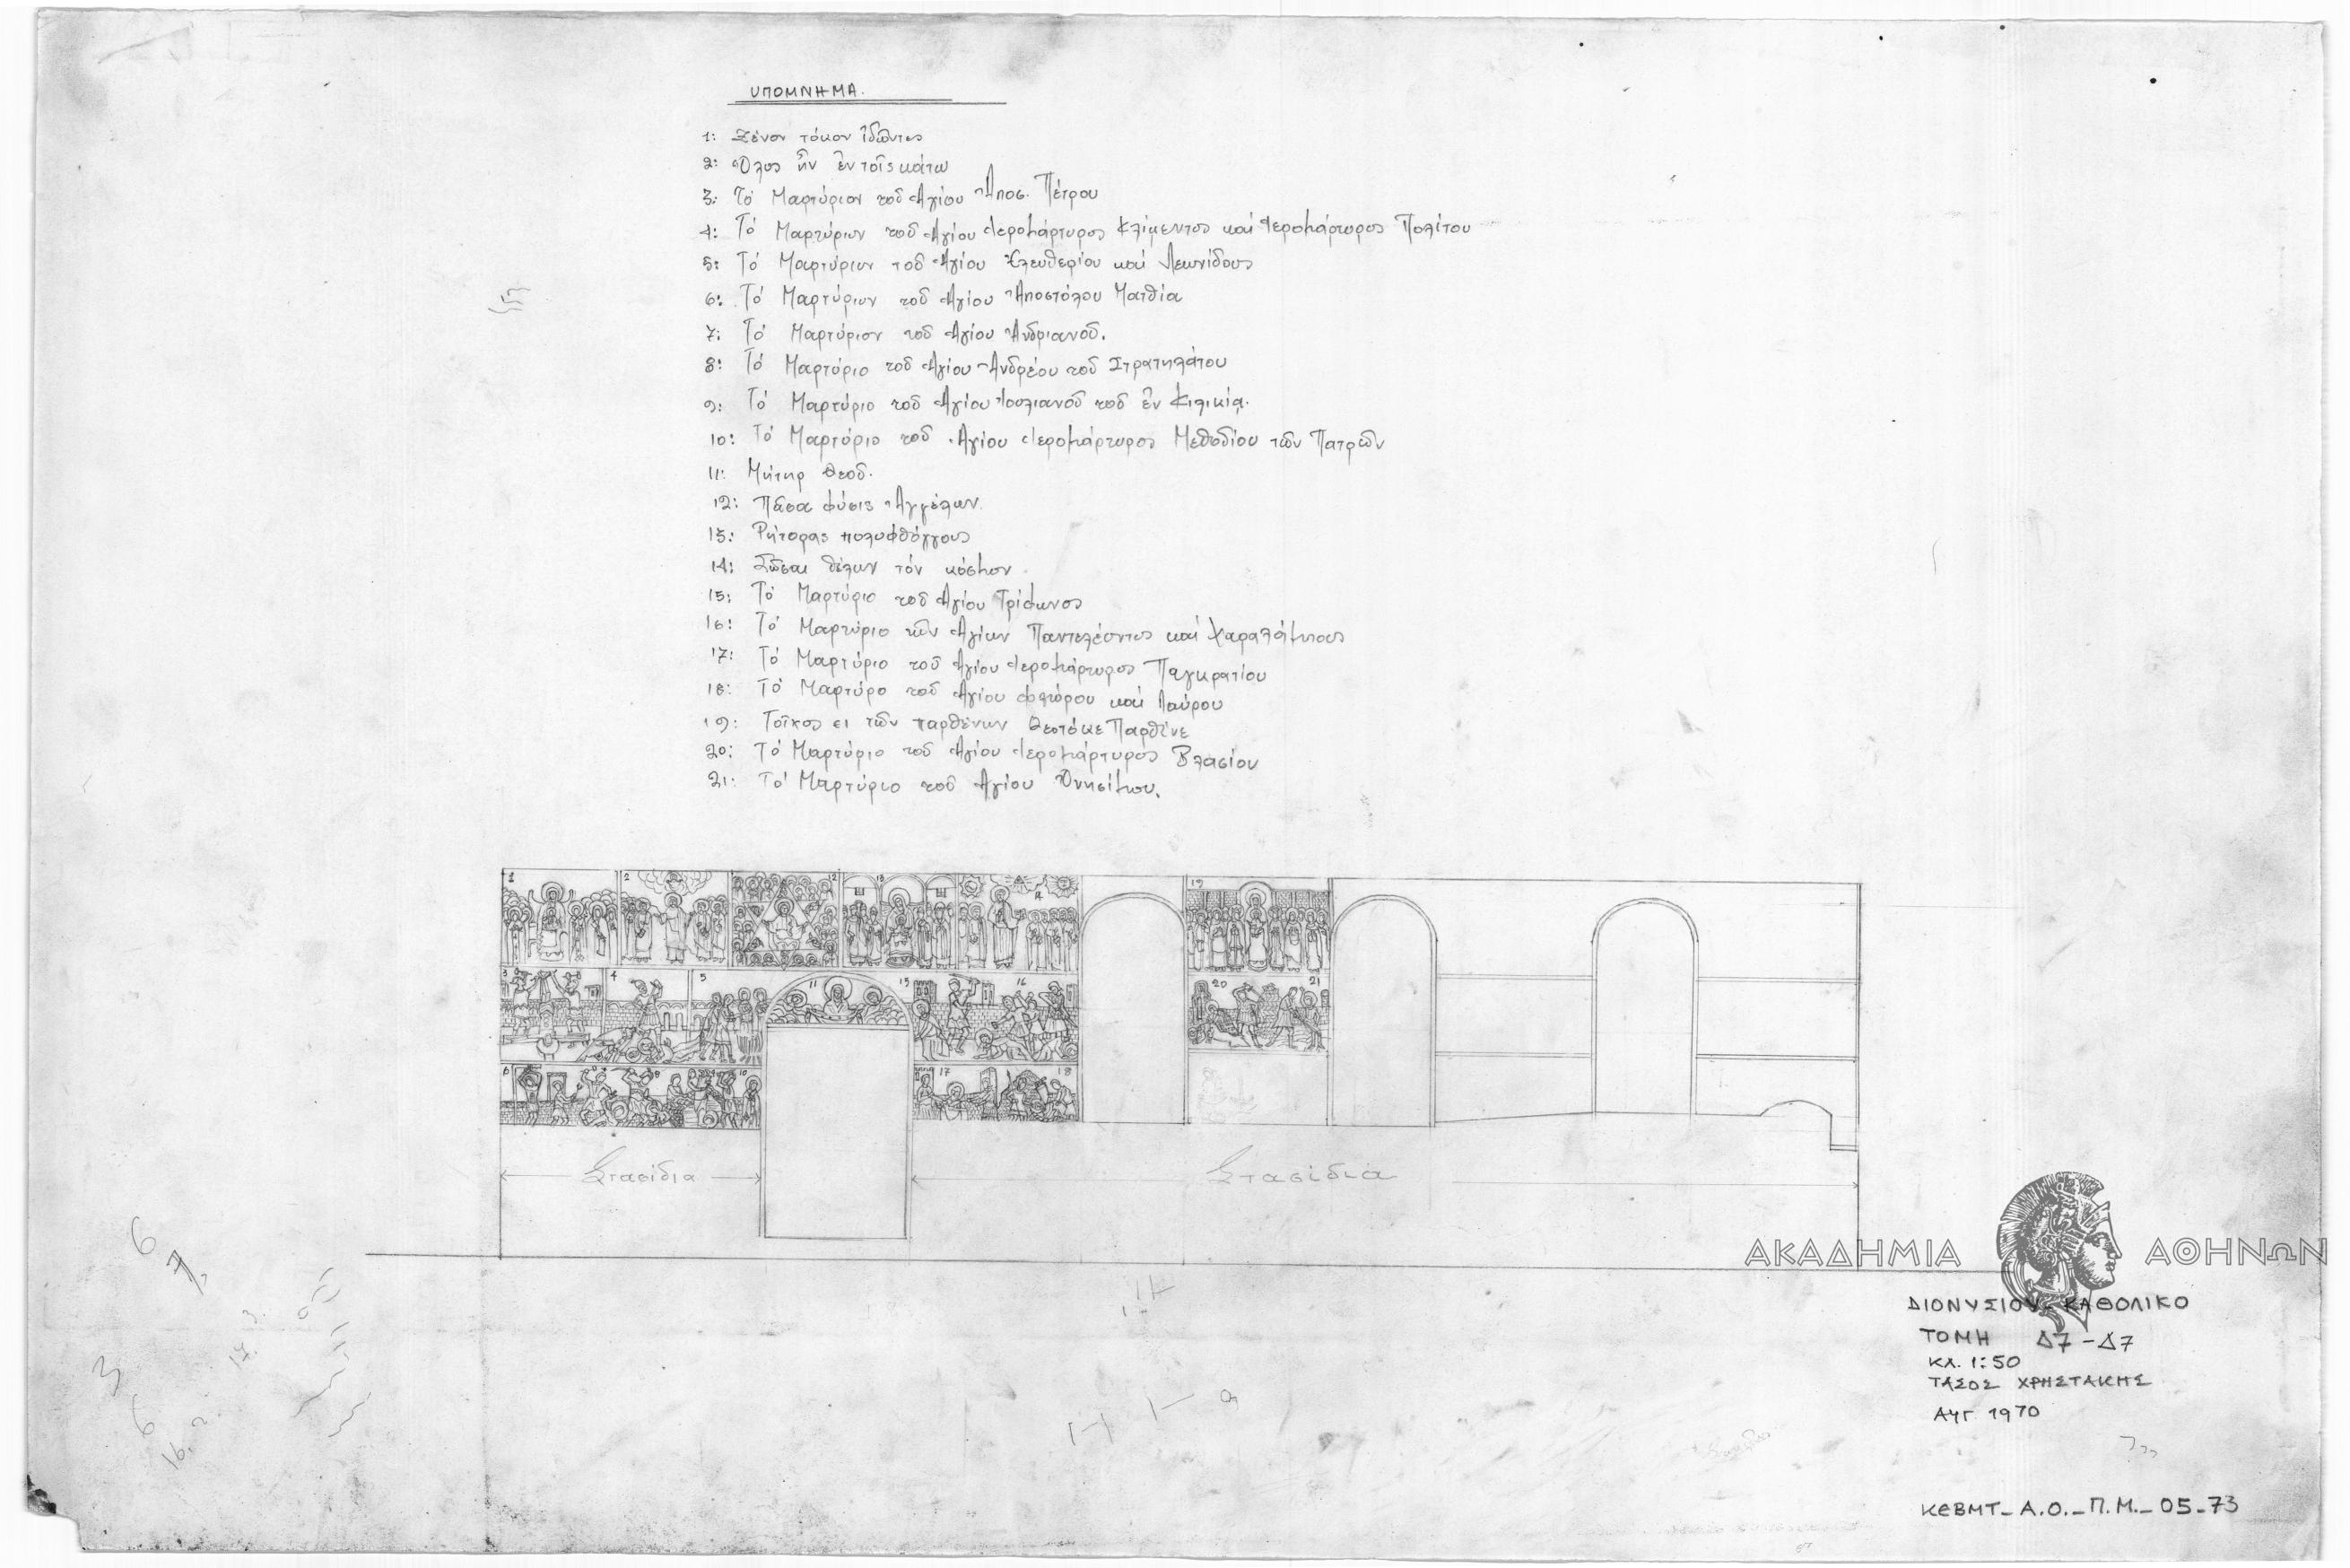 ΥΠΟΜΝΗΜΑ.
1: Ξένον τόκον ἰδῶντες
2: Ὅλος ἦν ἐν τοῖς κάτω
3: Τό Μαρτύριον τοῦ Ἁγίου Ἀποσ. Πέτρου
4: Τό Μαρτύριον τοῦ Ἁγίου Ἱερομάρτυρος Κλίμεντος καί Ἱερομάρτυρος Πολίτου
5: Τό Μαρτύριον τοῦ Ἁγίου Ἐλευθερίου καί Λεωνίδους
6: Τό Μαρτύριον τοῦ Ἁγίου Ἀποστόλου Ματθία
7: Τό Μαρτύριον τοῦ Ἁγίου Ἀνδριανοῦ.
8: Τό Μαρτύριο τοῦ Ἁγίου Ἀνδρέου τοῦ Στρατηλάτου
9: Τό Μαρτύριο τοῦ Ἁγίου Ἰουλιανοῦ τοῦ ἐν Κιλικίᾳ.
10: Τό Μαρτύριο τοῦ Ἁγίου Ἱερομάρτυρος Μεθοδίου τῶν Πατρῶν
11: Μήτηρ Θεοῦ.
12: Πᾶσα φύσις Ἀγγέλων.
13: Ρήτορας πολυφθόγγους
14: Σῶσαι θέλων τόν κόσμον
15: Τό Μαρτύριο τοῦ Ἁγίου Τρίφωνος
16: Τό Μαρτύριο τῶν Ἁγίων Παντελέοντος καί Χαραλάμπους
17: Τό Μαρτύριο τοῦ Ἁγίου Ἱερομάρτυρος Παγκρατίου
18: Τό Μαρτύρο τοῦ Ἁγίου Φλώρου καί Λαύρου
19: Τοῖχος ει τῶν παρθένων Θεοτόκε Παρθένε
20: Τό Μαρτύριο τοῦ Ἁγίου Ἱερομάρτυρος Βλασίου
21: Τό Μαρτύριο τοῦ Ἁγίου Ὀνησίμου.
1 2 12 13 14 19
3 4 5 11 15 16 20 21
6 8 9 10 17 18
Στασίδια Στασίδια
ΑΚΑΔΗΜΙΑ ΑΘΗΝΩΝ
ΔΙΟΝΥΣΙΟΥ - ΚΑΘΟΛΙΚΟ
ΤΟΜΗ Δ7-Δ7
ΚΛ. 1:50
ΤΑΣΟΣ ΧΡΗΣΤΑΚΗΣ
ΑΥΓ. 1970
ΚΕΒΜΤ_Α.Ο._Π.Μ._05_73